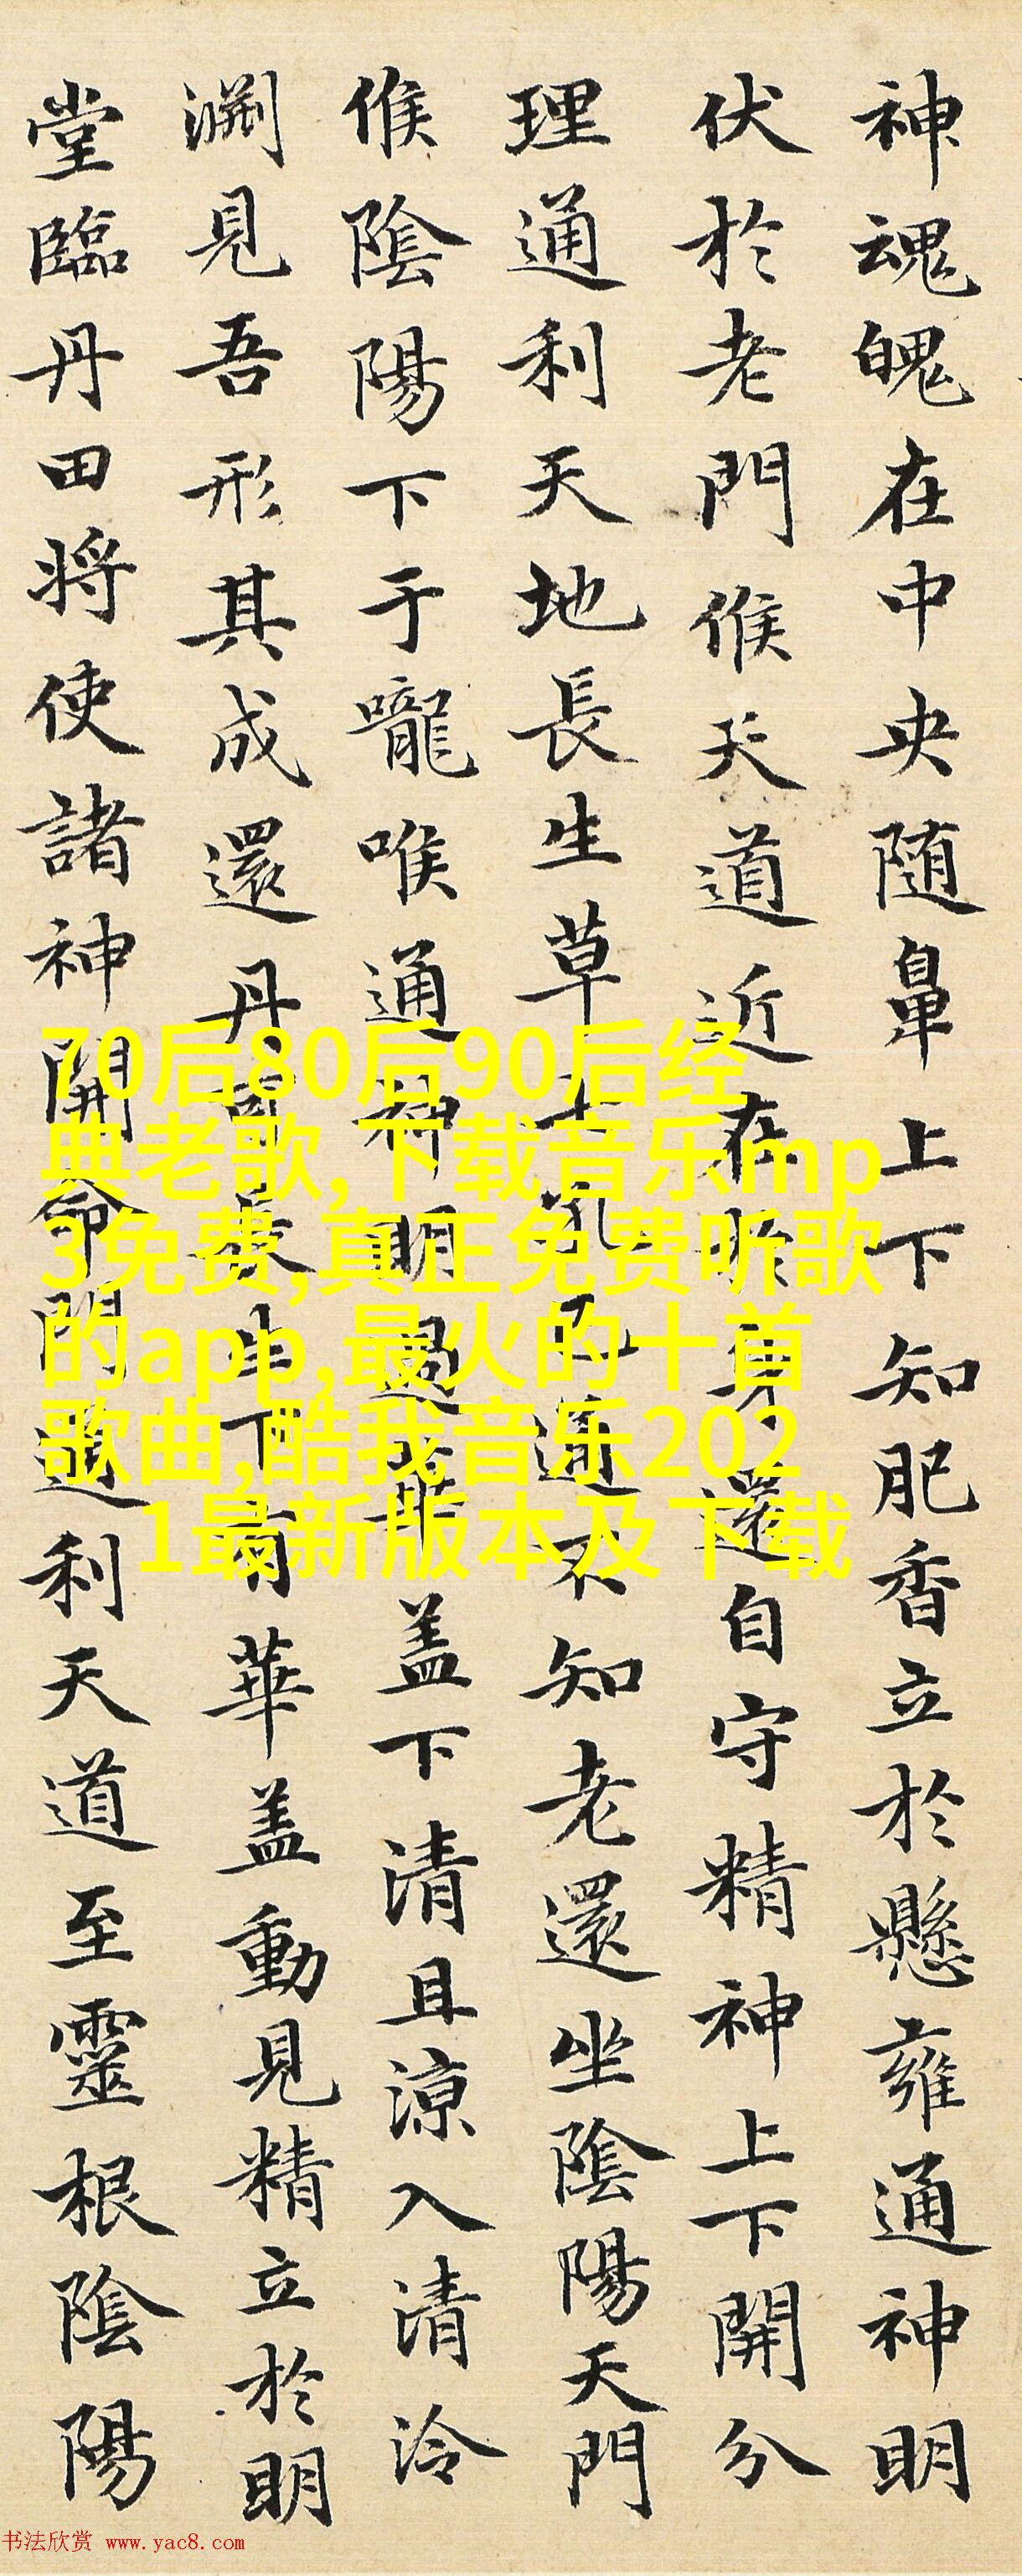 神魂魄在中央随鼻上下知肥香立於懸雍通神明
伏於老門候天道近在於身還自守精神上下開分
理通利天地長生草七孔已通不知老還坐陰陽天門
候陰陽下于嚨喉通神明過華盖下清且涼入清泠
渊見吾形其成還丹可長生下有華盖動見精立於明
堂臨丹田将使諸神開命門通利天道至靈根陰陽
70后80后90后经
典老歌,下载音乐mp
3免费,真正免费听歌
的app,最火的十首
歌曲,酷我音乐202
1最新版本及下载
书法欣赏 www.yac8.com